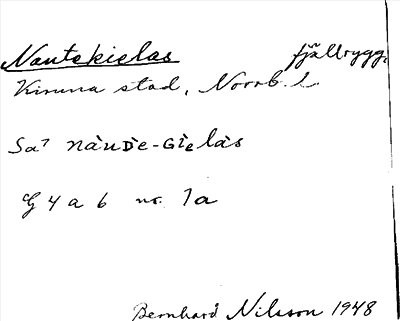 Nautekielas fjällrygg.
Kiruna stad, Norrb. l.
Sa⁷ nàuᴅ̀e-Gie̩làs
G 4 a b nr. 1a
Bernhard Nilsson 1948